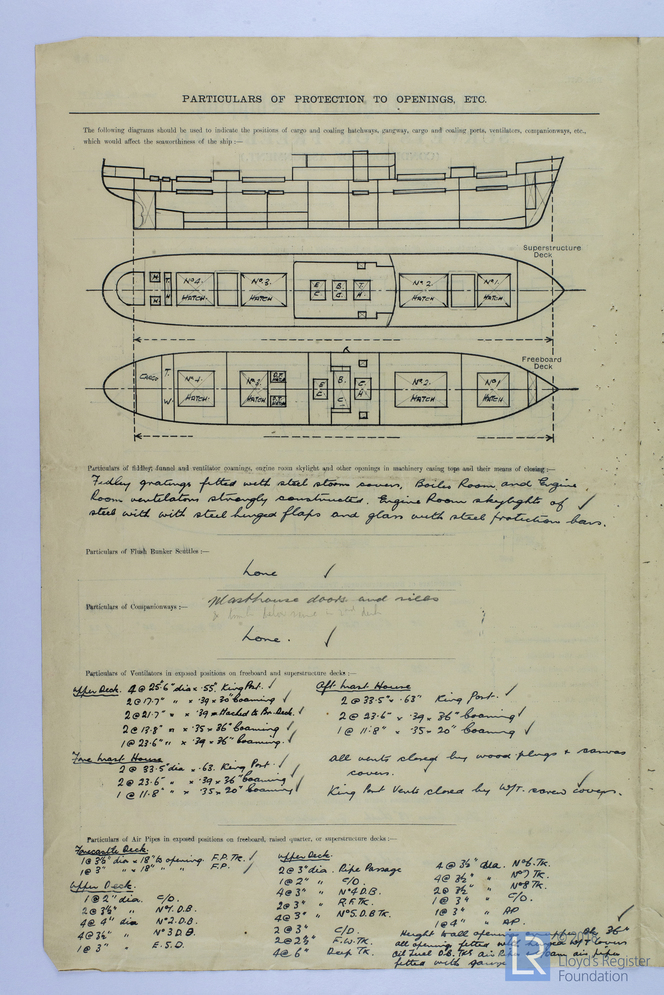 PARTICULARS OF PROTECTION TO OPENINGS, ETC.
The following diagrams should be used to indicate the positions of cargo and coaling hatchways, gangway, cargo and coaling ports, ventilators, companionways, etc.,
which would affect the seaworthiness of the ship:—
Superstructure
Deck
H T. Nº4. HATCH Nº3. HATCH E. C. B. C. T. H. Nº2. HATCH Nº1. HATCH
H H
Freeboard
Deck
CARGO T. W. Nº4. HATCH Nº3. HATCH E C B. C. C. H Nº2. HATCH Nº1 HATCH
Particulars of fiddley, funnel and ventilator coamings, engine room skylight and other openings in machinery casing tops and their means of closing:—
Fidley gratings fitted with steel storm covers, Boiler Room and Engine
Room ventilators strongly constructed. Engine Room skylights of
steel with with steel hinged flaps and glass with steel protection bars.
Particulars of Flush Bunker Scuttles:—
None
Particulars of Companionways:—
Masthouse doors and sills
None.
Particulars of Ventilators in exposed positions on freeboard and superstructure decks:—
Upper Deck. 4 @ 25·6" dia × ·55" King Post.
2 @ 17·7" " × ·39 × 30" coaming
2 @ 21·7" " × ·39 Attached to Br. Deck.
2 @ 13·8" " × ·35 × 36" coaming
1 @ 23·6" " × ·39 × 36" coaming.
Fore Mast House
2 @ 33·5" dia × ·63. King Post.
2 @ 23·6" " × ·39 × 36" coaming
1 @ 11·8" " × ·35 × 20" coaming
Aft Mast House
2 @ 33·5" × ·63" King Post.
2 @ 23·6" × ·39 × 36" coaming
1 @ 11·8" × ·35 × 20" coaming
All vents closed by wood plugs & canvas
covers.
King Post Vents closed by W/T. screw covers.
Particulars of Air Pipes in exposed positions on freeboard, raised quarter, or superstructure decks:—
Forecastle Deck.
1 @ 3½" dia × 18" to opening. F.P. Tk.
1 @ 3" " × 18" " " F.P.
Upper Deck.
1 @ 2" dia. C/D.
2 @ 3½" " Nº1. D.B.
4 @ 4" dia Nº2. D.B.
4 @ 3½" " Nº3 D.B.
1 @ 3" " E.S.D.
Upper Deck.
2 @ 3" dia. Pipe Passage
1 @ 2" " C/D.
4 @ 3" " Nº4 D.B.
2 @ 3" " R.F. Tk.
4 @ 3" " Nº5. D.B Tk.
2 @ 3" " C/D.
2 @ 2½" " F.W. Tk.
4 @ 6" " Deep Tk.
4 @ 3½" dia. Nº6. Tk.
4 @ 3½" " Nº7 Tk.
2 @ 3½" " Nº8 Tk.
1 @ 3" " C/D
1 @ 3" " AP
1 @ 4" " AP.
Height to all openings upper dk 36"
all opening fitted with hinged W/T covers
Oil Fuel D.B. Tks air pipes air pipes
fitted with gauze
LR
Lloyd's Register
Foundation